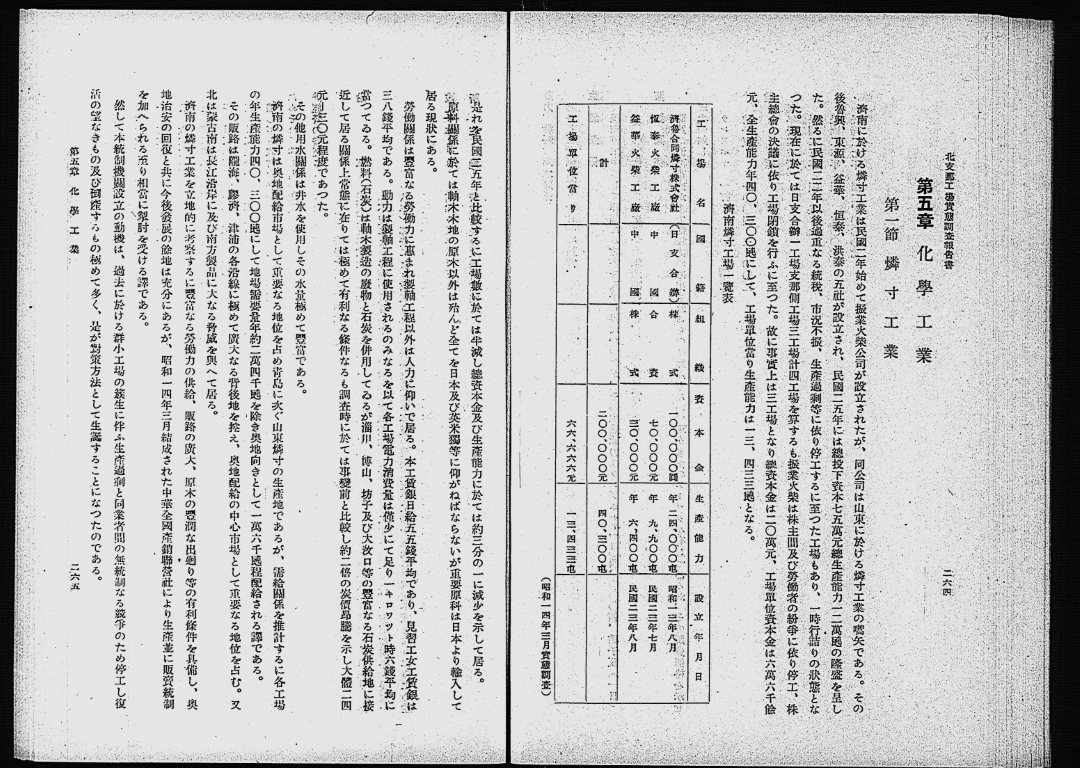 北支那工場實態調査報告書
二六四
第五章 化學工業
第一節 燐寸工業
濟南に於ける燐寸工業は民國二年始めて振業火柴公司が設立されたが、同公司は山東に於ける燐寸工業の嚆矢である。その
後魯興、東源、益華、恒泰、洪泰の五社が設立され、民國二五年には總投下資本七五萬元總生產能力一二萬噸の隆盛を呈し
た。然るに民國二二年以後過重なる統稅、市況不振、生產過剩等に依り停工するに至つた工場もあり、一時行詰りの狀態とな
つた。現在に於ては日支合辦一工場支那側工場三工場計四工場を算するも振業火柴は株主間及び勞働者の紛爭に依り停工、株
主總會の決議に依り工場閉鎖を行ふに至つた。故に事實上は三工場となり總資本金は二〇萬元、工場單位資本金は六萬六千餘
元、全生產能力年四〇、三〇〇噸にして、工場單位當り生產能力は一三、四三三噸となる。
濟南燐寸工場一覽表
工場名 國籍 組織 資本金 生產能力 設立年月日
濟魯合同燐寸株式會社 (日支合辦) 株式 一〇〇,〇〇〇圓 年二四,〇〇〇噸 昭和一三年八月
恆泰火柴工廠 中國 合資 七〇,〇〇〇元 年九,九〇〇噸 民國二三年七月
益華火柴工廠 中國 株式 三〇,〇〇〇元 年六,四〇〇噸 民國二三年八月
計 二〇〇,〇〇〇元 四〇,三〇〇噸
工場單位當り 六六,六六六元 一三,四三三噸
(昭和一四年三月實態調査)
是れを民國二五年と比較するに工場數に於ては半減し總資本金及び生產能力に於ては約三分の一に減少を示して居る。
原料關係に於ては軸木木地の原木以外は殆んど全てを日本及び英米獨等に仰がねばならないが重要原料は日本より輸入して
居る現狀にある。
勞働關係は豐富なる勞働力に惠まれ製軸工程以外は人力に仰いで居る。本工賃銀日給五五錢平均であり、見習工女工賃銀は
三八錢平均である。動力は製軸工程に使用されるのみなるを以て各工場電力消費量は僅少にて足り一キロワツト時六錢平均に
當つてゐる。燃料(石炭)は軸木製造の廢物と石炭を併用してゐるが淄川、博山、坊子及び大汶口等の豐富なる石炭供給地に接
近して居る關係上常態に在りては極めて有利なる條件なるも調査時に於ては事變前と比較し約二倍の炭價昂騰を示し大體二四
元—三〇元程度であつた。
その他用水關係は井水を使用しその水量極めて豐富である。
濟南の燐寸は奧地配給市場として重要なる地位を占め靑島に次ぐ山東燐寸の生產地であるが、需給關係を推計するに各工場
の年生產能力四〇、三〇〇噸にして地場需要量年約二萬四千噸を除き奧地向きとして一萬六千噸程配給される譯である。
その販路は隴海、膠濟、津浦の各沿線に極めて廣大なる背後地を控え、奧地配給の中心市場として重要なる地位を占む。又
北は蒙古南は長江沿岸に及び南方製品に大なる脅威を與へて居る。
濟南の燐寸工業を立地的に考察するに豐富なる勞働力の供給、販路の廣大、原木の豐潤な出廻り等の有利條件を具備し、奧
地治安の回復と共に今後發展の餘地は充分にあるが、昭和一四年三月結成された中華全國產銷聯營社により生產並に販賣統制
を加へられる至り相當に掣肘を受ける譯である。
然して本統制機關設立の動機は、過去に於ける群小工場の簇生に伴ふ生產過剩と同業者間の無統制なる競爭のため停工し復
活の望なきもの及び倒產するもの極めて多く、是が對策方法として生誕することになつたのである。
第五章 化學工業
二六五